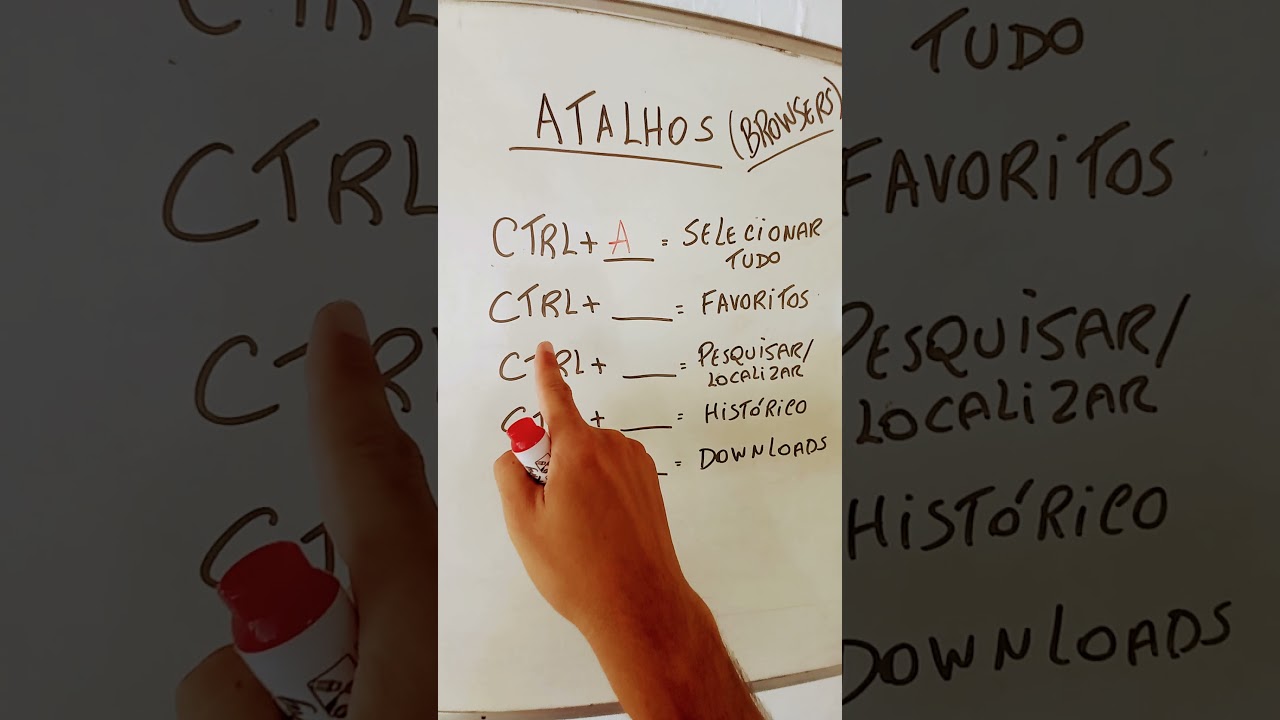 ATALHOS (BROWSERS)
CTRL + A = SELECIONAR
TUDO
CTRL + ___ = FAVORITOS
CTRL + ___ = PESQUISAR/
LOCALIZAR
CTRL + ___ = HISTÓRICO
= DOWNLOADS